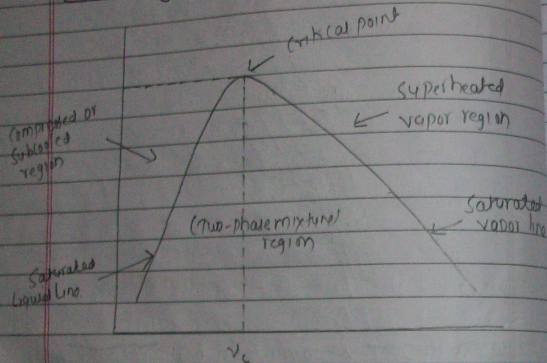 critical point
superheated
vapor region
compressed or
subcooled
region
(Two-phase mixture)
region
saturated
vapor line
saturated
liquid line
Vc